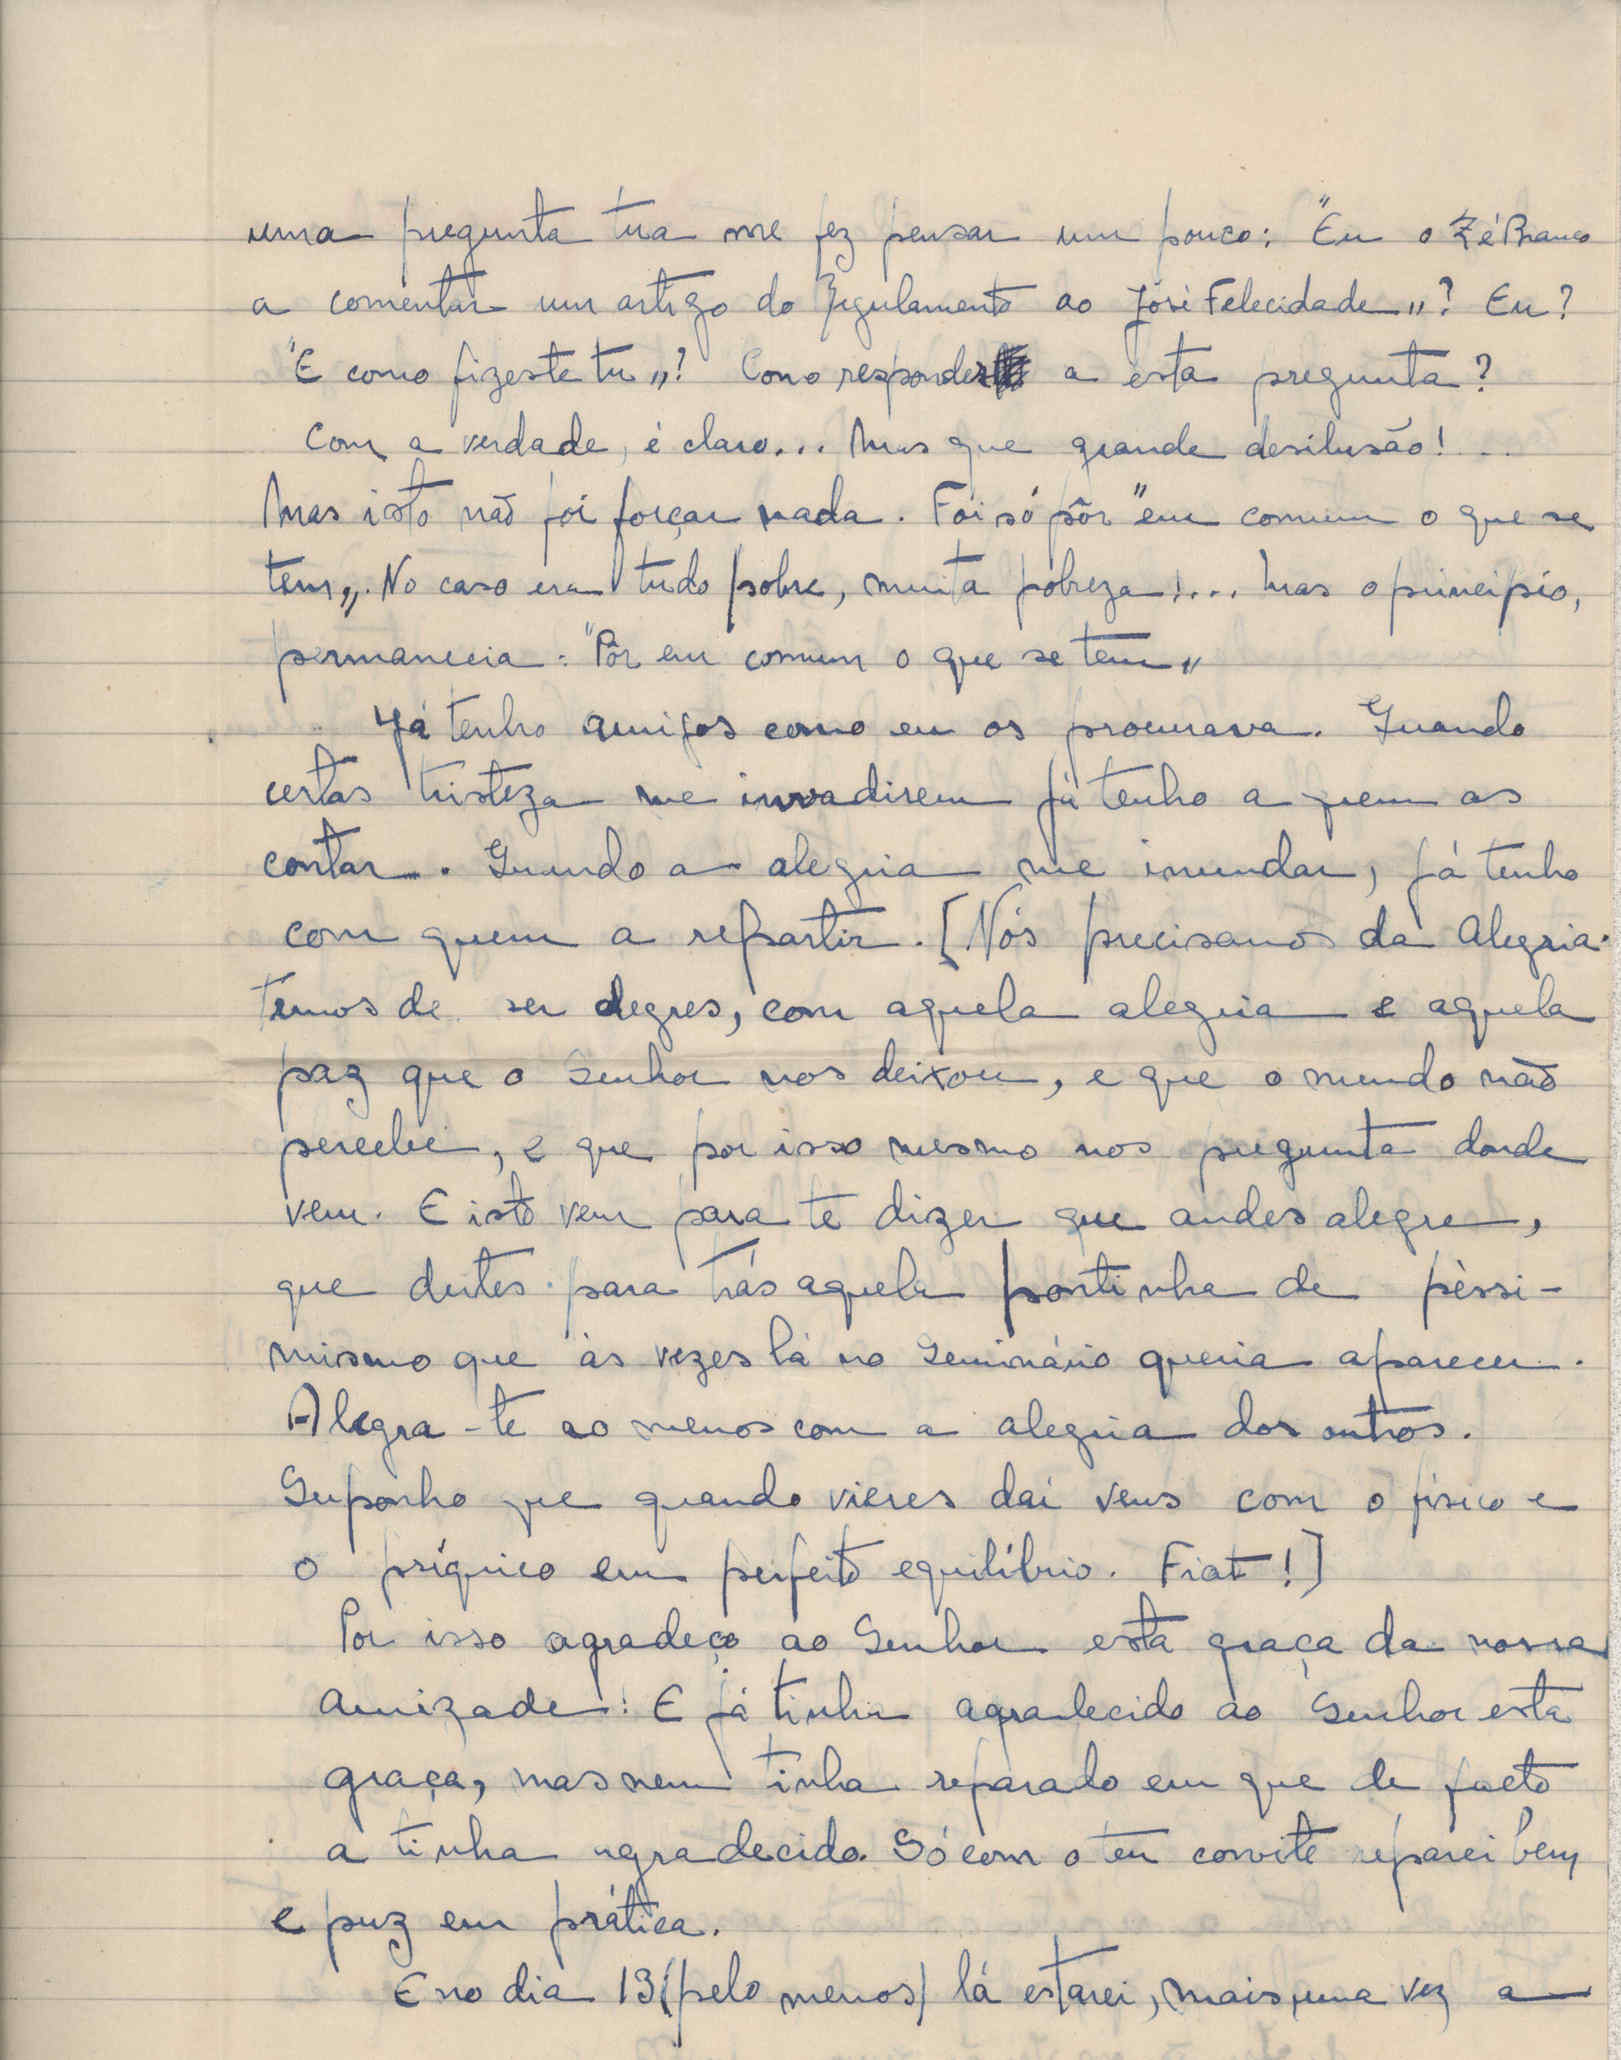 uma pregunta tua me fez pensar um pouco: "Eu o Zé Branco
a comentar um artigo do Regulamento ao José Felecidade"? Eu?
"E como fizeste tu"? Como responder a esta pregunta?
Com a verdade, é claro... Mas que grande desilusão!...
Mas isto não foi forçar nada. Foi só pôr "em comum o que se
tem". No caso era tudo pobre, muita pobreza!... Mas o principio,
permanecia: "Pôr em comum o que se tem"
Já tenho amigos como eu os procurava. Quando
certas tristeza me invadirem já tenho a quem as
contar. Quando a alegria me inundar, já tenho
com quem a repartir. [Nós precisamos da Alegria.
temos de ser alegres, com aquela alegria e aquela
paz que o Senhor nos deixou, e que o mundo não
percebe, e que por isso mesmo nos pregunta donde
vem. E isto vem para te dizer que andes alegre,
que deites para trás aquela pontinha de pèssi-
mismo que às vezes lá no Seminário queria aparecer.
Alegra-te ao menos com a alegria dos outros.
Suponho que quando vieres daí vens com o fisico e
o psíquico em perfeito equilíbrio. Fiat!]
Por isso agradeço ao Senhor esta graça da nossa
amizade! E já tinha agradecido ao Senhor esta
graça, mas nem tinha reparado em que de facto
a tinha agradecido. Só com o teu convite reparei bem
e puz em prática.
E no dia 13 (pelo menos) lá estarei, mais uma vez a